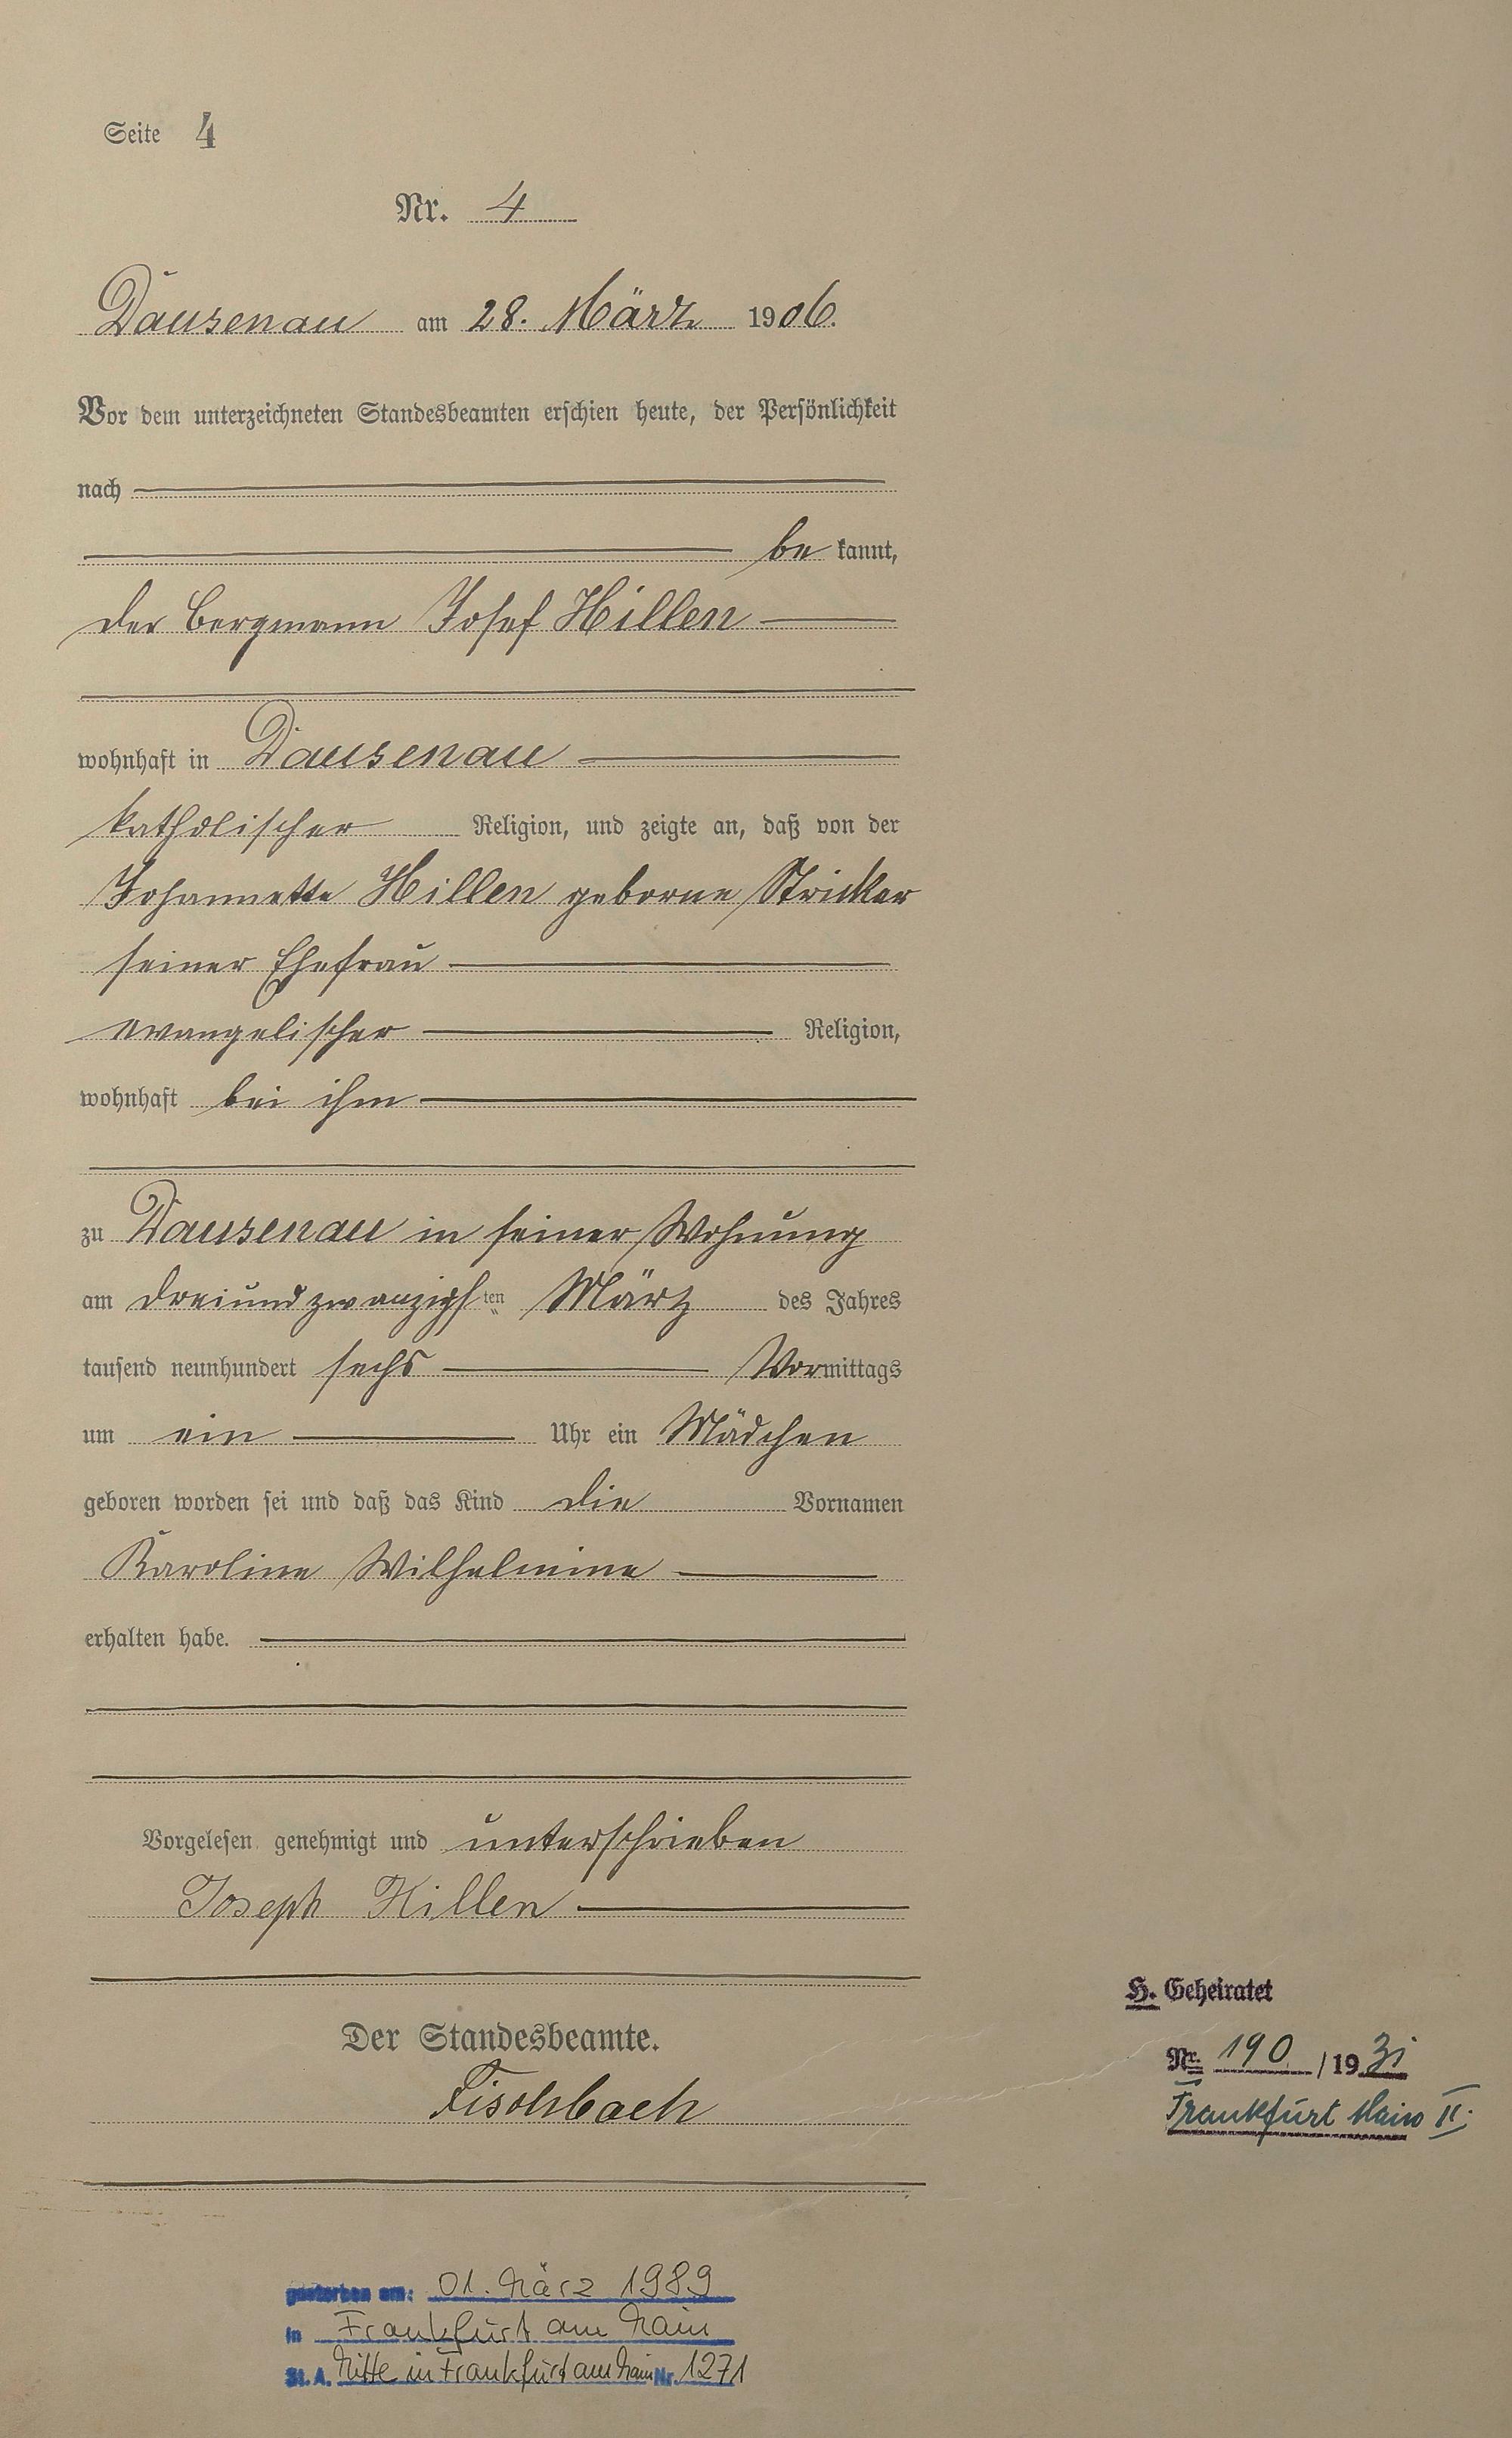 Seite 4
Nr. 4
Dausenau am 28. März 1906.
Vor dem unterzeichneten Standesbeamten erschien heute, der Persönlichkeit
nach
be kannt,
der Bergmann Josef Hillen
wohnhaft in Dausenau
katholischer Religion, und zeigte an, daß von der
Johannette Hillen geborne Stricker
seiner Ehefrau
evangelischer Religion,
wohnhaft bei ihm
zu Dausenau in seiner Wohnung
am dreiundzwanzigsten März des Jahres
tausend neunhundert sechs Vormittags
um ein Uhr ein Mädchen
geboren worden sei und daß das Kind die Vornamen
Karoline Wilhelmine
erhalten habe.
Vorgelesen, genehmigt und unterschrieben
Joseph Hillen
Der Standesbeamte.
Fischbach
H. Geheiratet
Nr. 190 / 1931
Frankfurt Main II.
gestorben am: 01. März 1989
in Frankfurt am Main
St. A. Mitte in Frankfurt am Main Nr. 1271